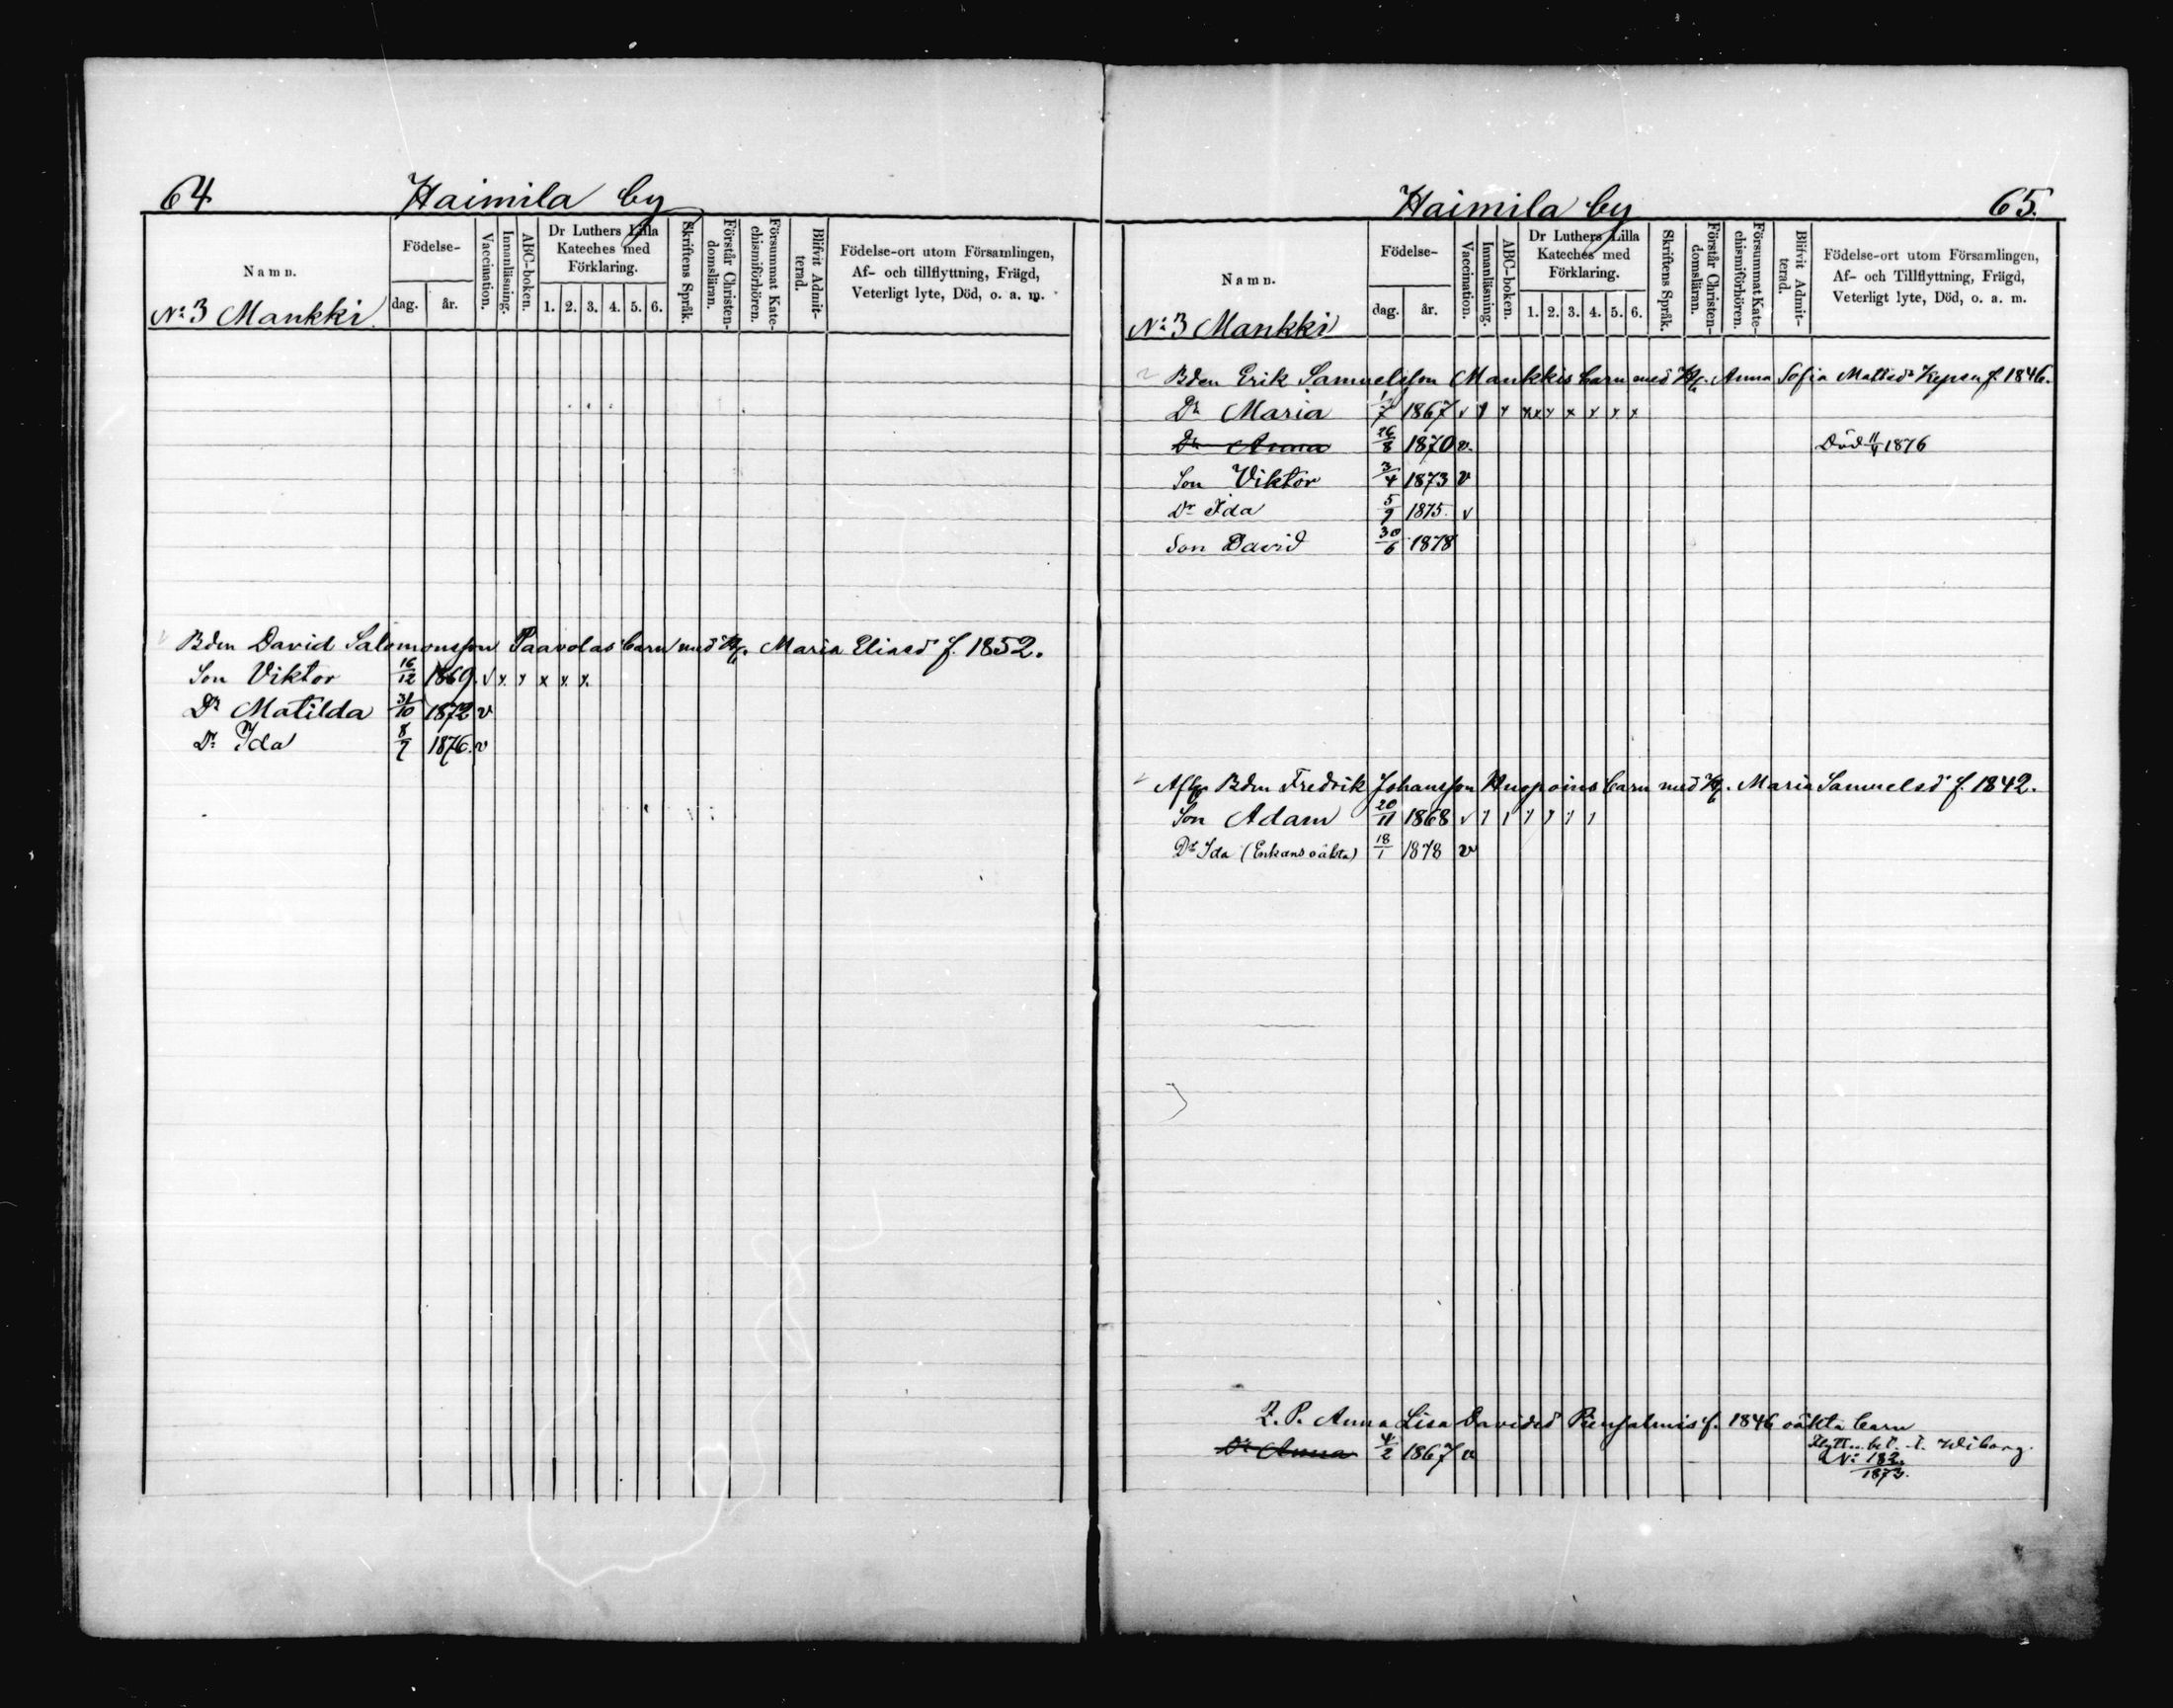 64 Haimila by
Namn.
Födelse-
dag.
år.
Vaccination.
Innanläsning.
ABC-boken.
Dr Luthers Lilla
Kateches med
Förklaring.
1. 2. 3. 4. 5. 6.
Skriftens Språk.
Förstår Christen-
domsläran.
Försummat Kate-
chismiförhören.
Blifvit Admit-
terad.
Födelse-ort utom Församlingen,
Af- och tillflyttning, Frägd,
Veterligt lyte, Död, o. a. m.
No 3 Mankki
Bden David Salomonsson Paavolas barn med Maria Eliasd f. 1852.
Son Viktor 16/12 1869. v x x x x x
Dr Matilda 31/10 1872 v
Dr Ida 8/7 1876. v
Haimila by 65.
Namn.
Födelse-
dag.
år.
Vaccination.
Innanläsning.
ABC-boken.
Dr Luthers Lilla
Kateches med
Förklaring.
1. 2. 3. 4. 5. 6.
Skriftens Språk.
Förstår Christen-
domsläran.
Försummat Kate-
chismiförhören.
Blifvit Admit-
terad.
Födelse-ort utom Församlingen,
Af- och Tillflyttning, Frägd,
Veterligt lyte, Död, o. a. m.
No 3 Mankki
Bden Erik Samuelsson Mankkis barn med Anna Sofia Mattsd f. 1846.
Dr Maria 1/7 1867 v x x x x x x x x
Dr Anna 26/8 1870 v. Död 11/4 1876
Son Viktor 3/4 1873 v
Dr Ida 5/9 1875. v
Son David 30/6 1878
Bden Fredrik Johansson barn med Maria Samuelsd f. 1842.
Son Adam 20/11 1868 v x x x x x x
Dr Ida (Enkans oäkta) 18/1 1878 v
Anna Lisa Davidsd f. 1846 oäkta barn
Dr Anna 4/2 1867 v
Wiborg.
No 182.
1873.